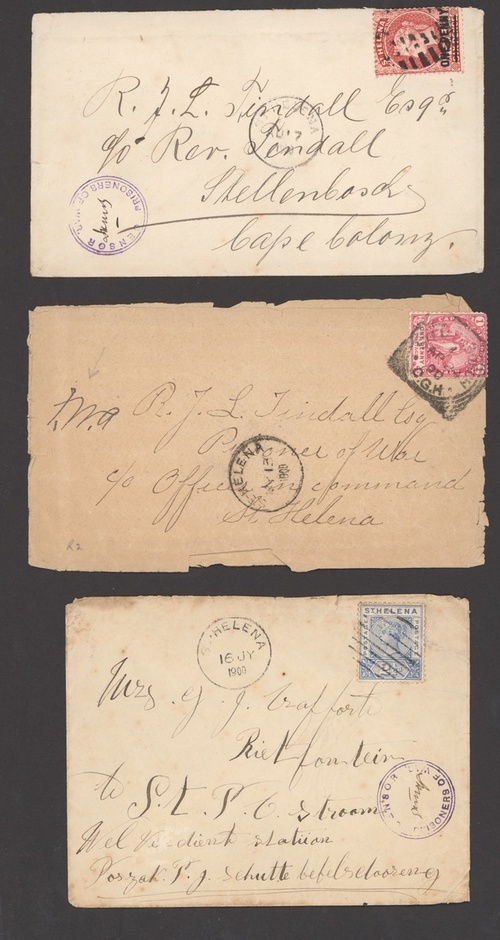 ST HELENA
ONE PENNY
R. J. L. Tindall Esqre
c/o Rev. Tindall
Stellenbosch
Cape Colony.
ST HELENA
CENSOR
PRISONERS OF WAR
CGH
R. J. L. Tindall Esq
Prisoner of War
c/o Officer in command
St Helena
ST HELENA
1900
R2
ST HELENA
16 JY
1900
ST HELENA
POSTAGE
Mrs. G. J.
Rietfontein
to S. L. P. C. stroom
Wel Verdient statiion
P. J. Schutte
CENSOR
PRISONERS OF WAR